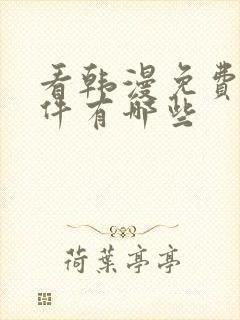 看韩漫免费
件有哪些
荷葉亭亭